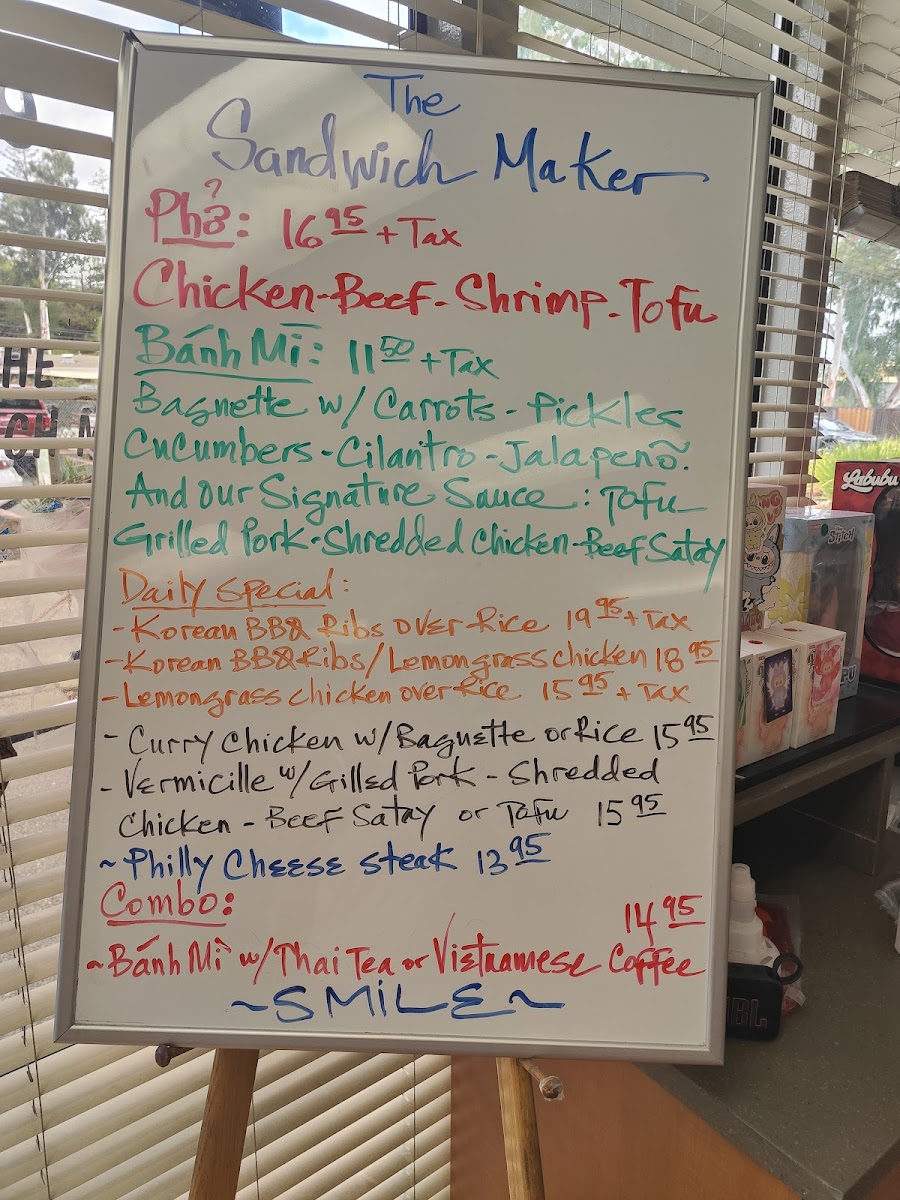 The
Sandwich Maker
Phở: 16 95 + Tax
Chicken-Beef-Shrimp-Tofu
Bánh Mì: 11 50 + Tax
Baguette w/ Carrots - Pickles
Cucumbers - Cilantro - Jalapeño.
And Our Signature Sauce: Tofu
Grilled Pork-Shredded Chicken-Beef Satay
Daily Special:
- Korean BBQ Ribs over Rice 19 95 + Tax
- Korean BBQ Ribs/Lemongrass chicken 18 95
- Lemongrass chicken over Rice 15 95 + Tax
- Curry Chicken w/Baguette or Rice 15 95
- Vermicille w/Gilled Pork - Shredded
Chicken - Beef Satay or Tofu 15 95
~ Philly Cheese steak 13 95
Combo: 14 95
~ Bánh Mì w/Thai Tea or Vietnamese Coffee
~SMILE~
HE
CH
Labubu
Stitch
JBL